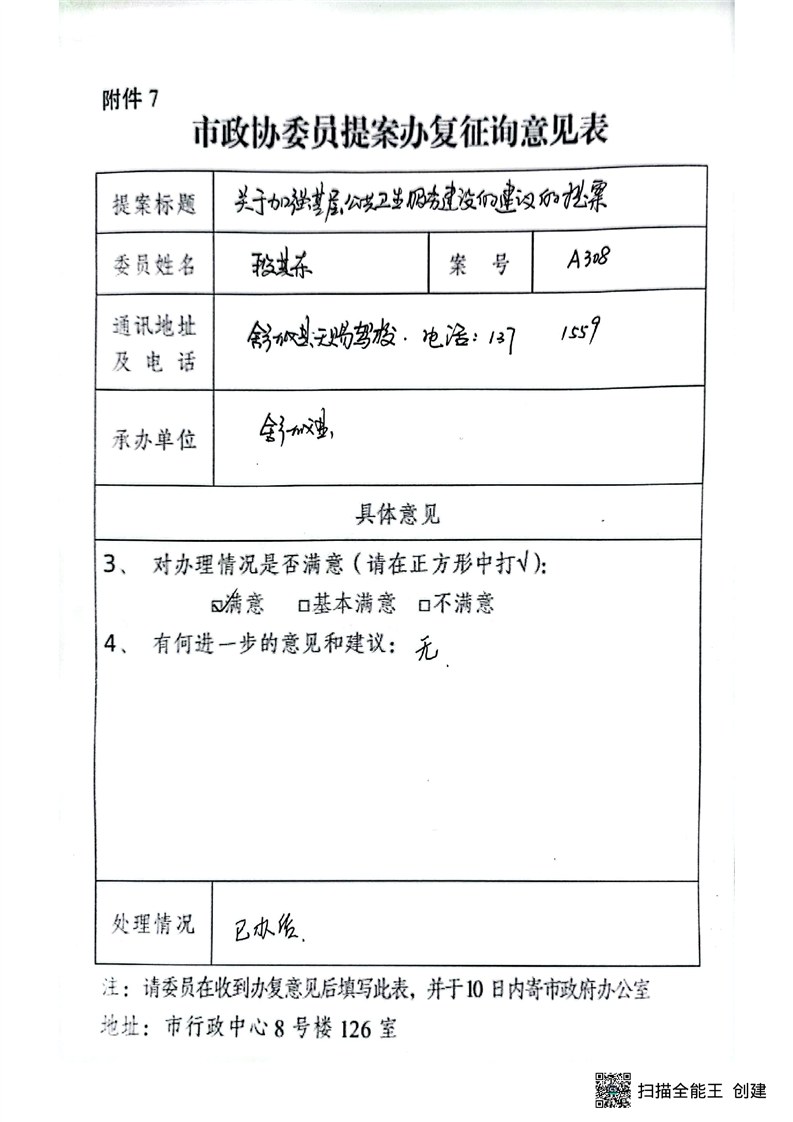 附件 7
市政协委员提案办复征询意见表
提案标题 关于加强基层公共卫生服务建设的建议的提案
委员姓名 段其东 案 号 A308
通讯地址 舒城县天赐驾校. 电话: 137 1559
及 电 话
承办单位 舒城县
具体意见
3、 对办理情况是否满意(请在正方形中打√):
☑满意 □基本满意 □不满意
4、 有何进一步的意见和建议: 无.
处理情况 已办结.
注: 请委员在收到办复意见后填写此表, 并于 10 日内寄市政府办公室
地址: 市行政中心 8 号楼 126 室
扫描全能王 创建